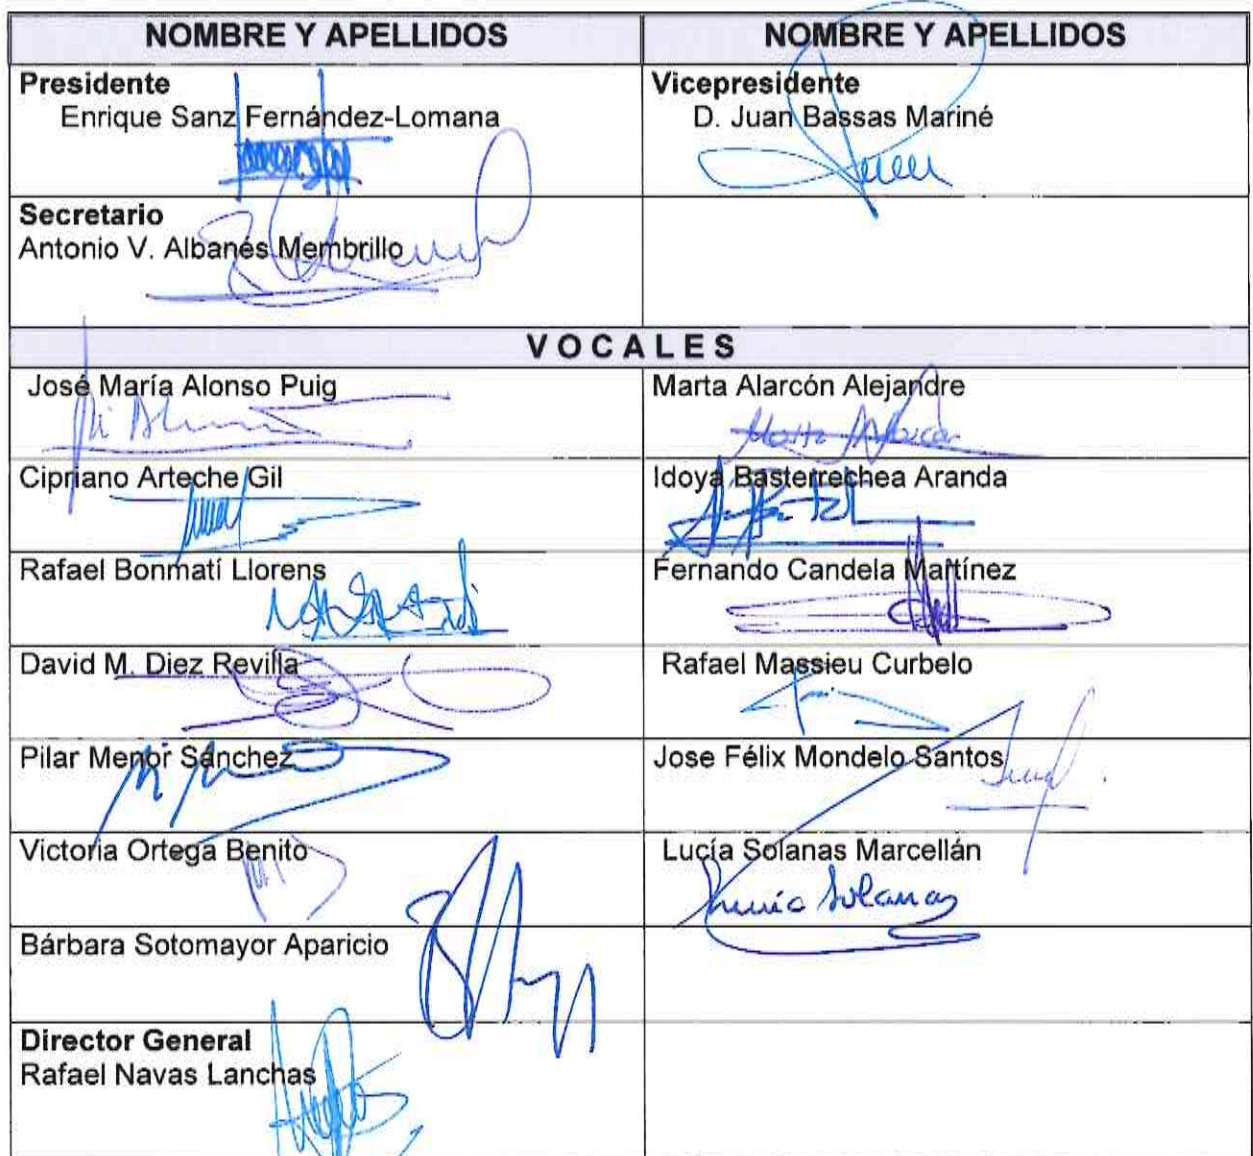 NOMBRE Y APELLIDOS NOMBRE Y APELLIDOS
Presidente
Enrique Sanz Fernández-Lomana
Vicepresidente
D. Juan Bassas Mariné
Secretario
Antonio V. Albanés Membrillo
VOCALES
José María Alonso Puig
Marta Alarcón Alejandre
Marta Alarcón
Cipriano Arteche Gil
Idoya Basterrechea Aranda
Rafael Bonmatí Llorens
Fernando Candela Martínez
David M. Diez Revilla
Rafael Massieu Curbelo
Pilar Menor Sánchez
Jose Félix Mondelo Santos
Victoria Ortega Benito
Lucía Solanas Marcellán
Solanas
Bárbara Sotomayor Aparicio
Director General
Rafael Navas Lanchas